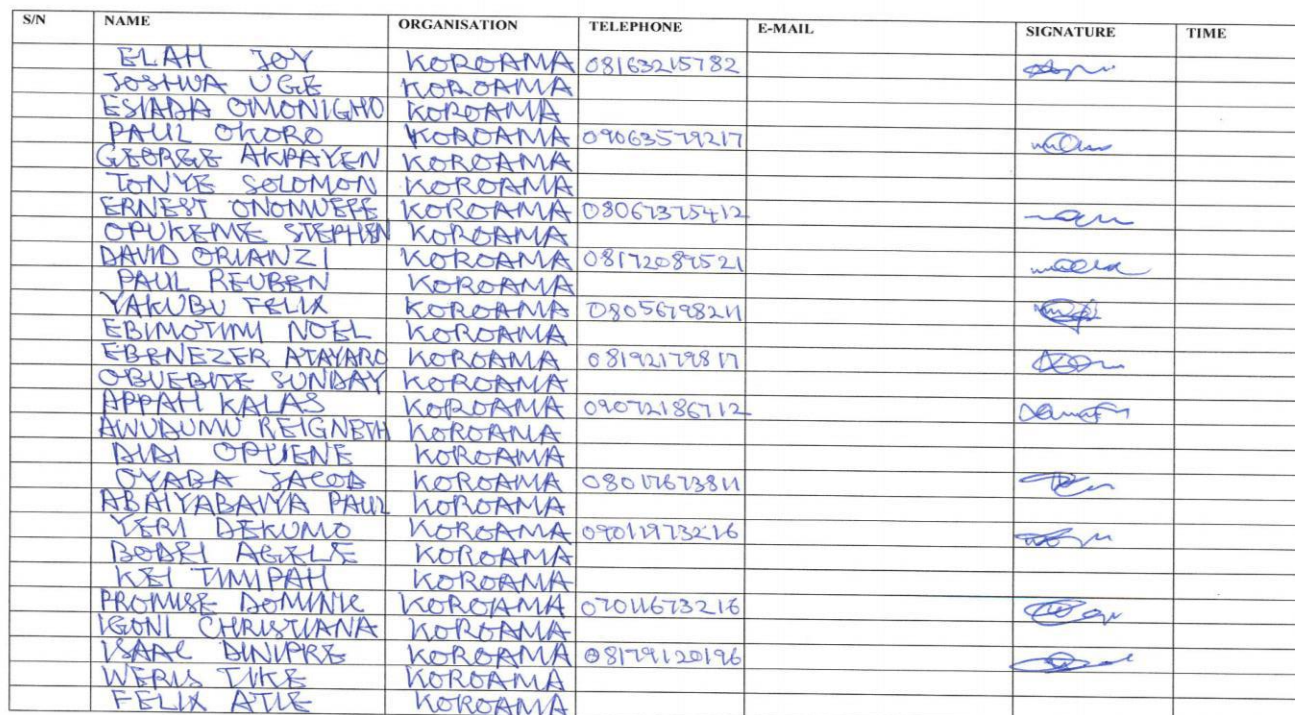 S/N NAME ORGANISATION TELEPHONE E-MAIL SIGNATURE TIME
ELAH JOY KOROAMA 08163215782
JOSHUA UGE KOROAMA
ESIADA OMONIGHO KOROAMA
PAUL OKORO KOROAMA 09063579217
GEORGE AKPAYEN KOROAMA
TONYE SOLOMON KOROAMA
ERNEST ONOMUEFE KOROAMA 08067375412
OPUKEME STEPHEN KOROAMA
DAVID ORIANZI KOROAMA 08172089521
PAUL REUBEN KOROAMA
YAKUBU FELIX KOROAMA 08056798211
EBIMOTIMI NOEL KOROAMA
EBENEZER ATAYARO KOROAMA 08192179817
OBUEBITE SUNDAY KOROAMA
APPAH KALAS KOROAMA 09072186712
AWUDUMU REIGNETH KOROAMA
DIDI OPUENE KOROAMA
OYABA JACOB KOROAMA 08017673811
ABAIYABAIYA PAUL KOROAMA
YERI DEKUMO KOROAMA 09011973216
BODEI AGELE KOROAMA
KEI TIMIPAH KOROAMA
PROMISE DOMINIC KOROAMA 07011673216
IGONI CHRISTIANA KOROAMA
ISAAC DINIPRE KOROAMA 08179120196
WERIS TIKE KOROAMA
FELIX ATIE KOROAMA